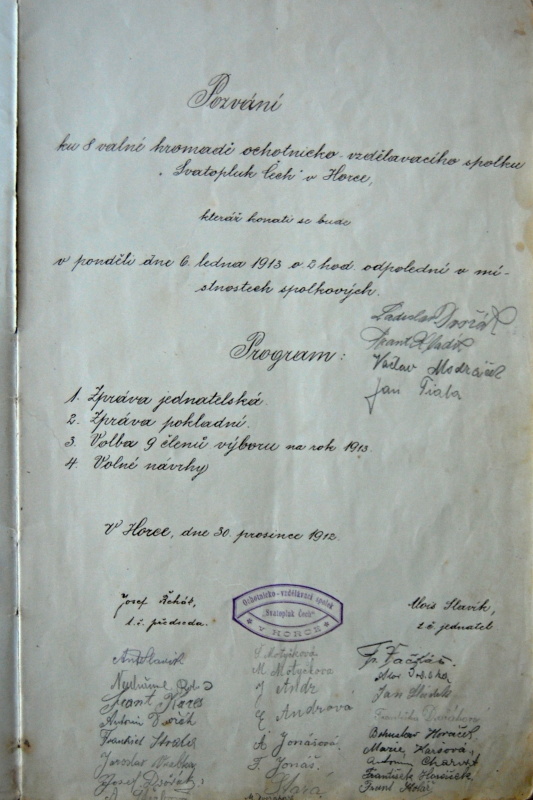 Pozvání
ku 8 valné hromadě ochotnicko-vzdělavacího spolku
„Svatopluk Čech" v Horce,
kteráž konati se bude
v pondělí dne 6. ledna 1913 o 2 hod odpolední v mí-
stnostech spolkových.
Ladislav Dvořák
Frant.
Václav Modráček
Jan Fiala
Program:
1. Zpráva jednatelská.
2. Zpráva pokladní.
3 Volba 9 členů výboru na rok 1913.
4. Volné návrhy
V Horce, dne 30. prosince 1912.
Josef Řehák,
t. č. předseda.
Ochotnicko-vzdělávací spolek
„Svatopluk Čech"
V HORCE
Alois Slavík,
t č jednatel
Ant Slavík
Frant Kareš
Antonín Dvořák
Frantiel
Jaroslav
Josef
S. Motyčková
M Motyčkova
J Andr
E Andrová
A Jonášová
F. Jonáš
Stará
Fr.
Alois
Jan
Františka
Bohuslav Horáček
Marie Karsová,
Antonín Charvát
František Horáček
Frant